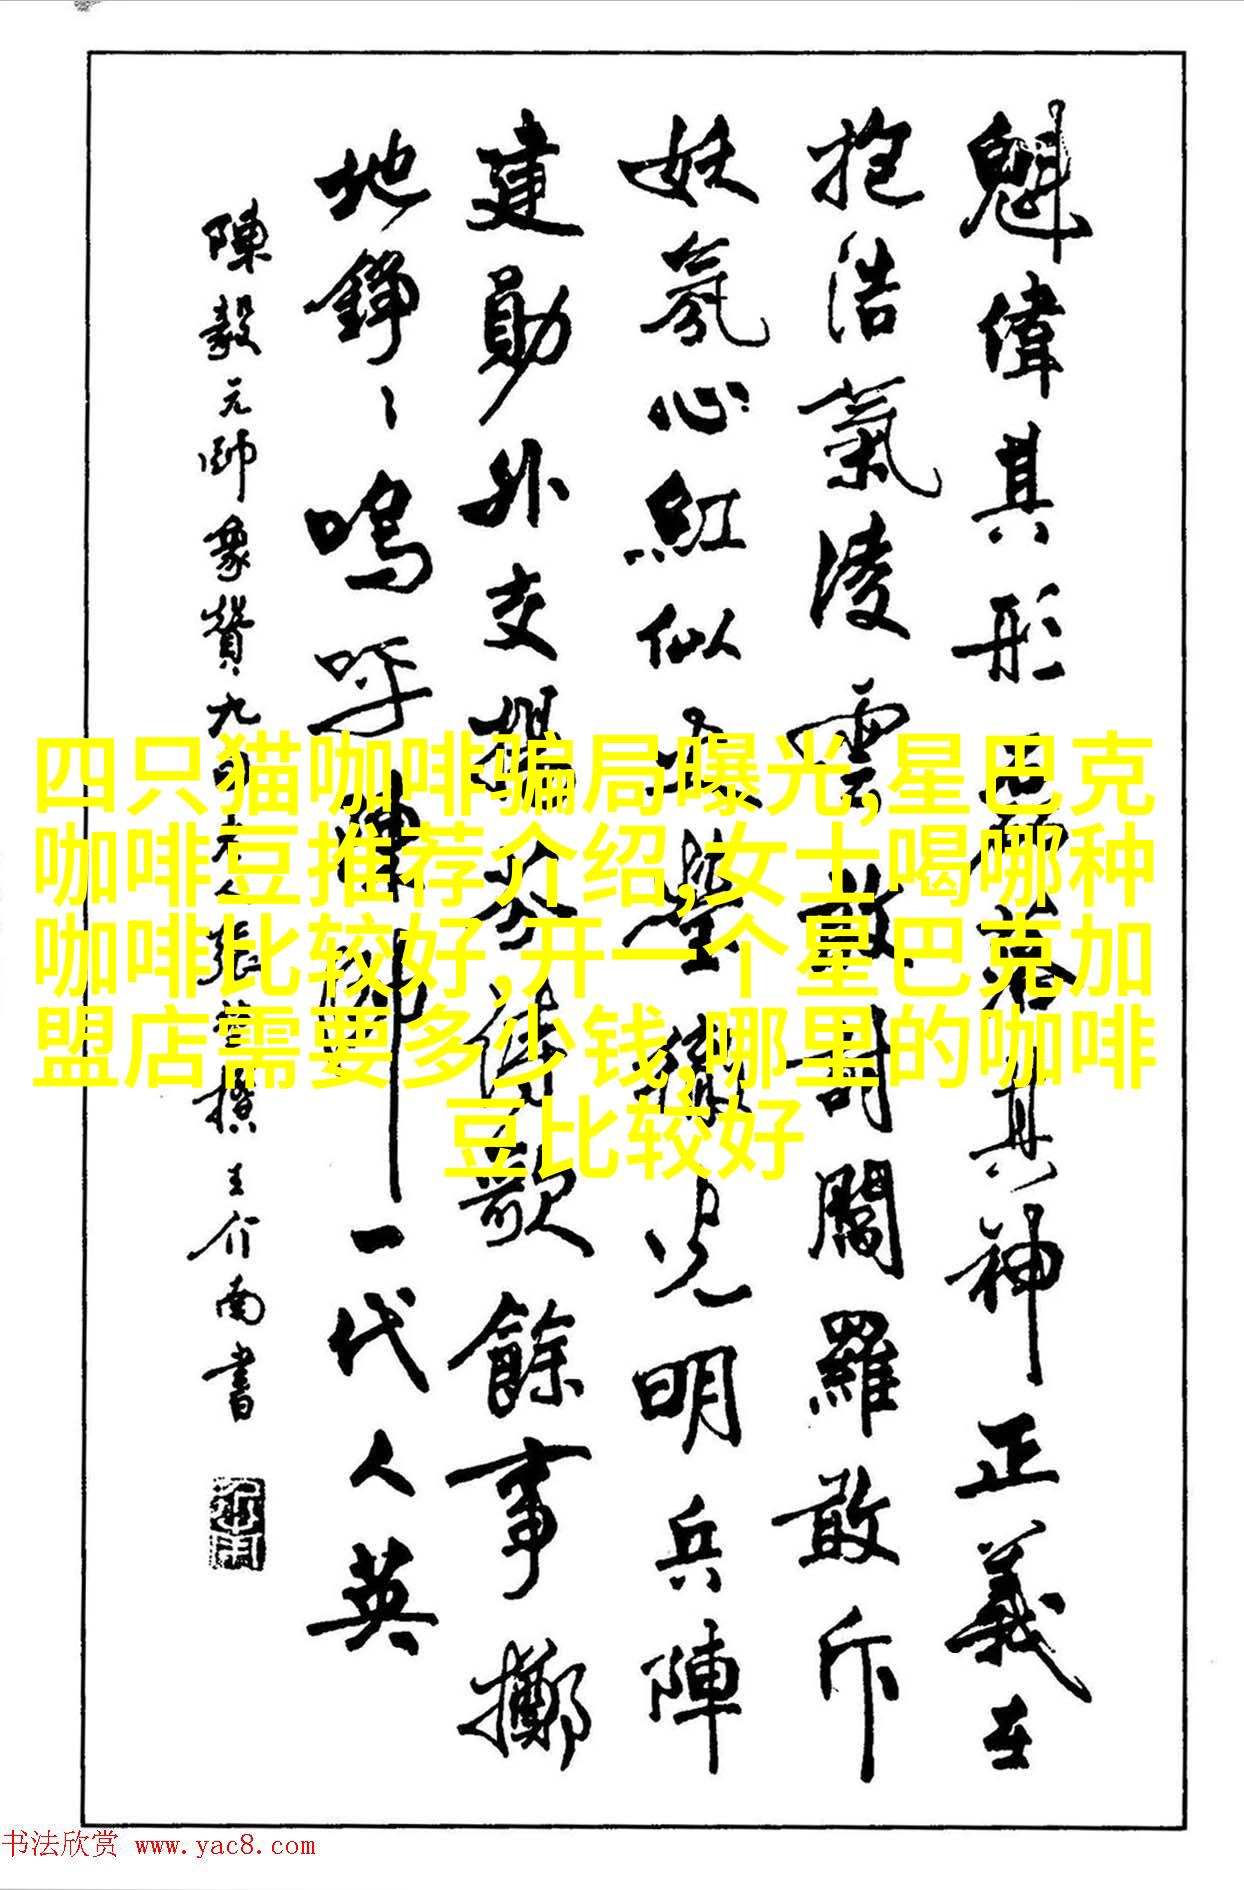 魁偉其形
其神正義在
抱浩氣凌雲敢
闢羅敢斥
妖氛心紅似
光明兵陣
建勛外交揚芬
歌餘事擲
地錚〻嗚呼陳
一代人英
陳毅元師象贊九
撰王介南書
四只猫咖啡骗局曝光,星巴克
咖啡豆推荐介绍,女士喝哪种
咖啡比较好,开一个星巴克加
盟店需要多少钱,哪里的咖啡
豆比较好
书法欣赏 www.yac8.com